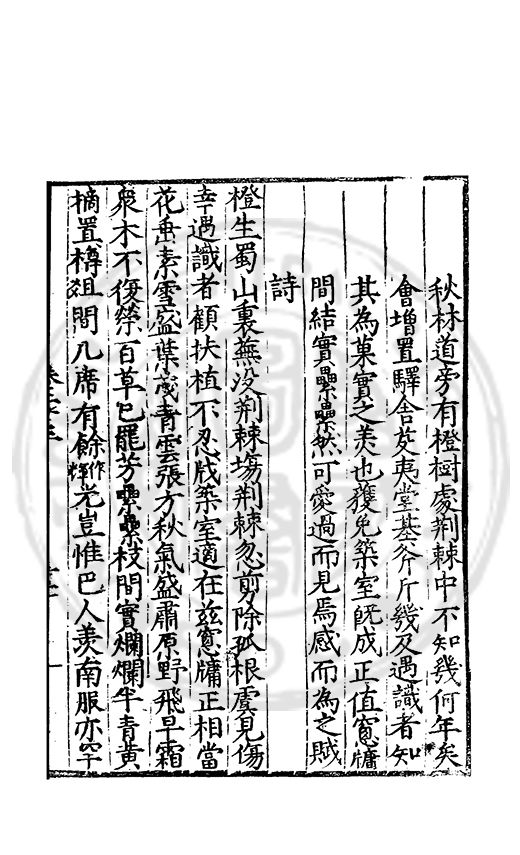 秋林道旁有橙樹處荊棘中不知幾何年矣
會增置驛舍芟夷堂基斧斤幾及遇識者知
其為菓實之美也獲免築室旣成正值窻牖
間結實纍纍然可愛過而見焉感而為之賦
詩
橙生蜀山裏蕪没荆棘塲荆棘忽剪除孤根虞見傷
幸遇識者顧扶植不忍戕築室適在兹窻牖正相當
花垂素雪盛葉茂青雲張方秋氣盛肅原野飛早霜
衆木不復榮百草已罷芳纍纍枝間實爛爛半青黃
摘置樽俎間几席有餘作輝光豈惟巴人羨南服亦罕